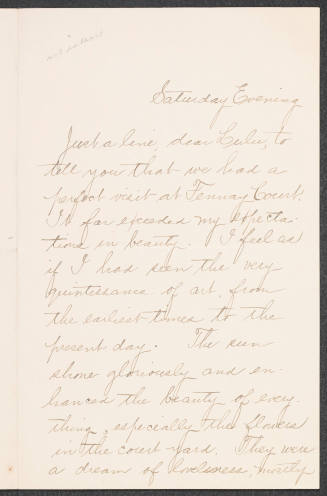 Saturday Evening
Just a line, dear Lulu, to
tell you that we had a
perfect visit at Fenway Court.
It far exceeded my expecta-
tions in beauty. I feel as
if I had seen the very
quintessance of art, from
the earliest times to the
present day. The sun
shone gloriously and en-
hanced the beauty of every
thing, especially the flowers
in the court-yard. They were
a dream of loveliness, mostly